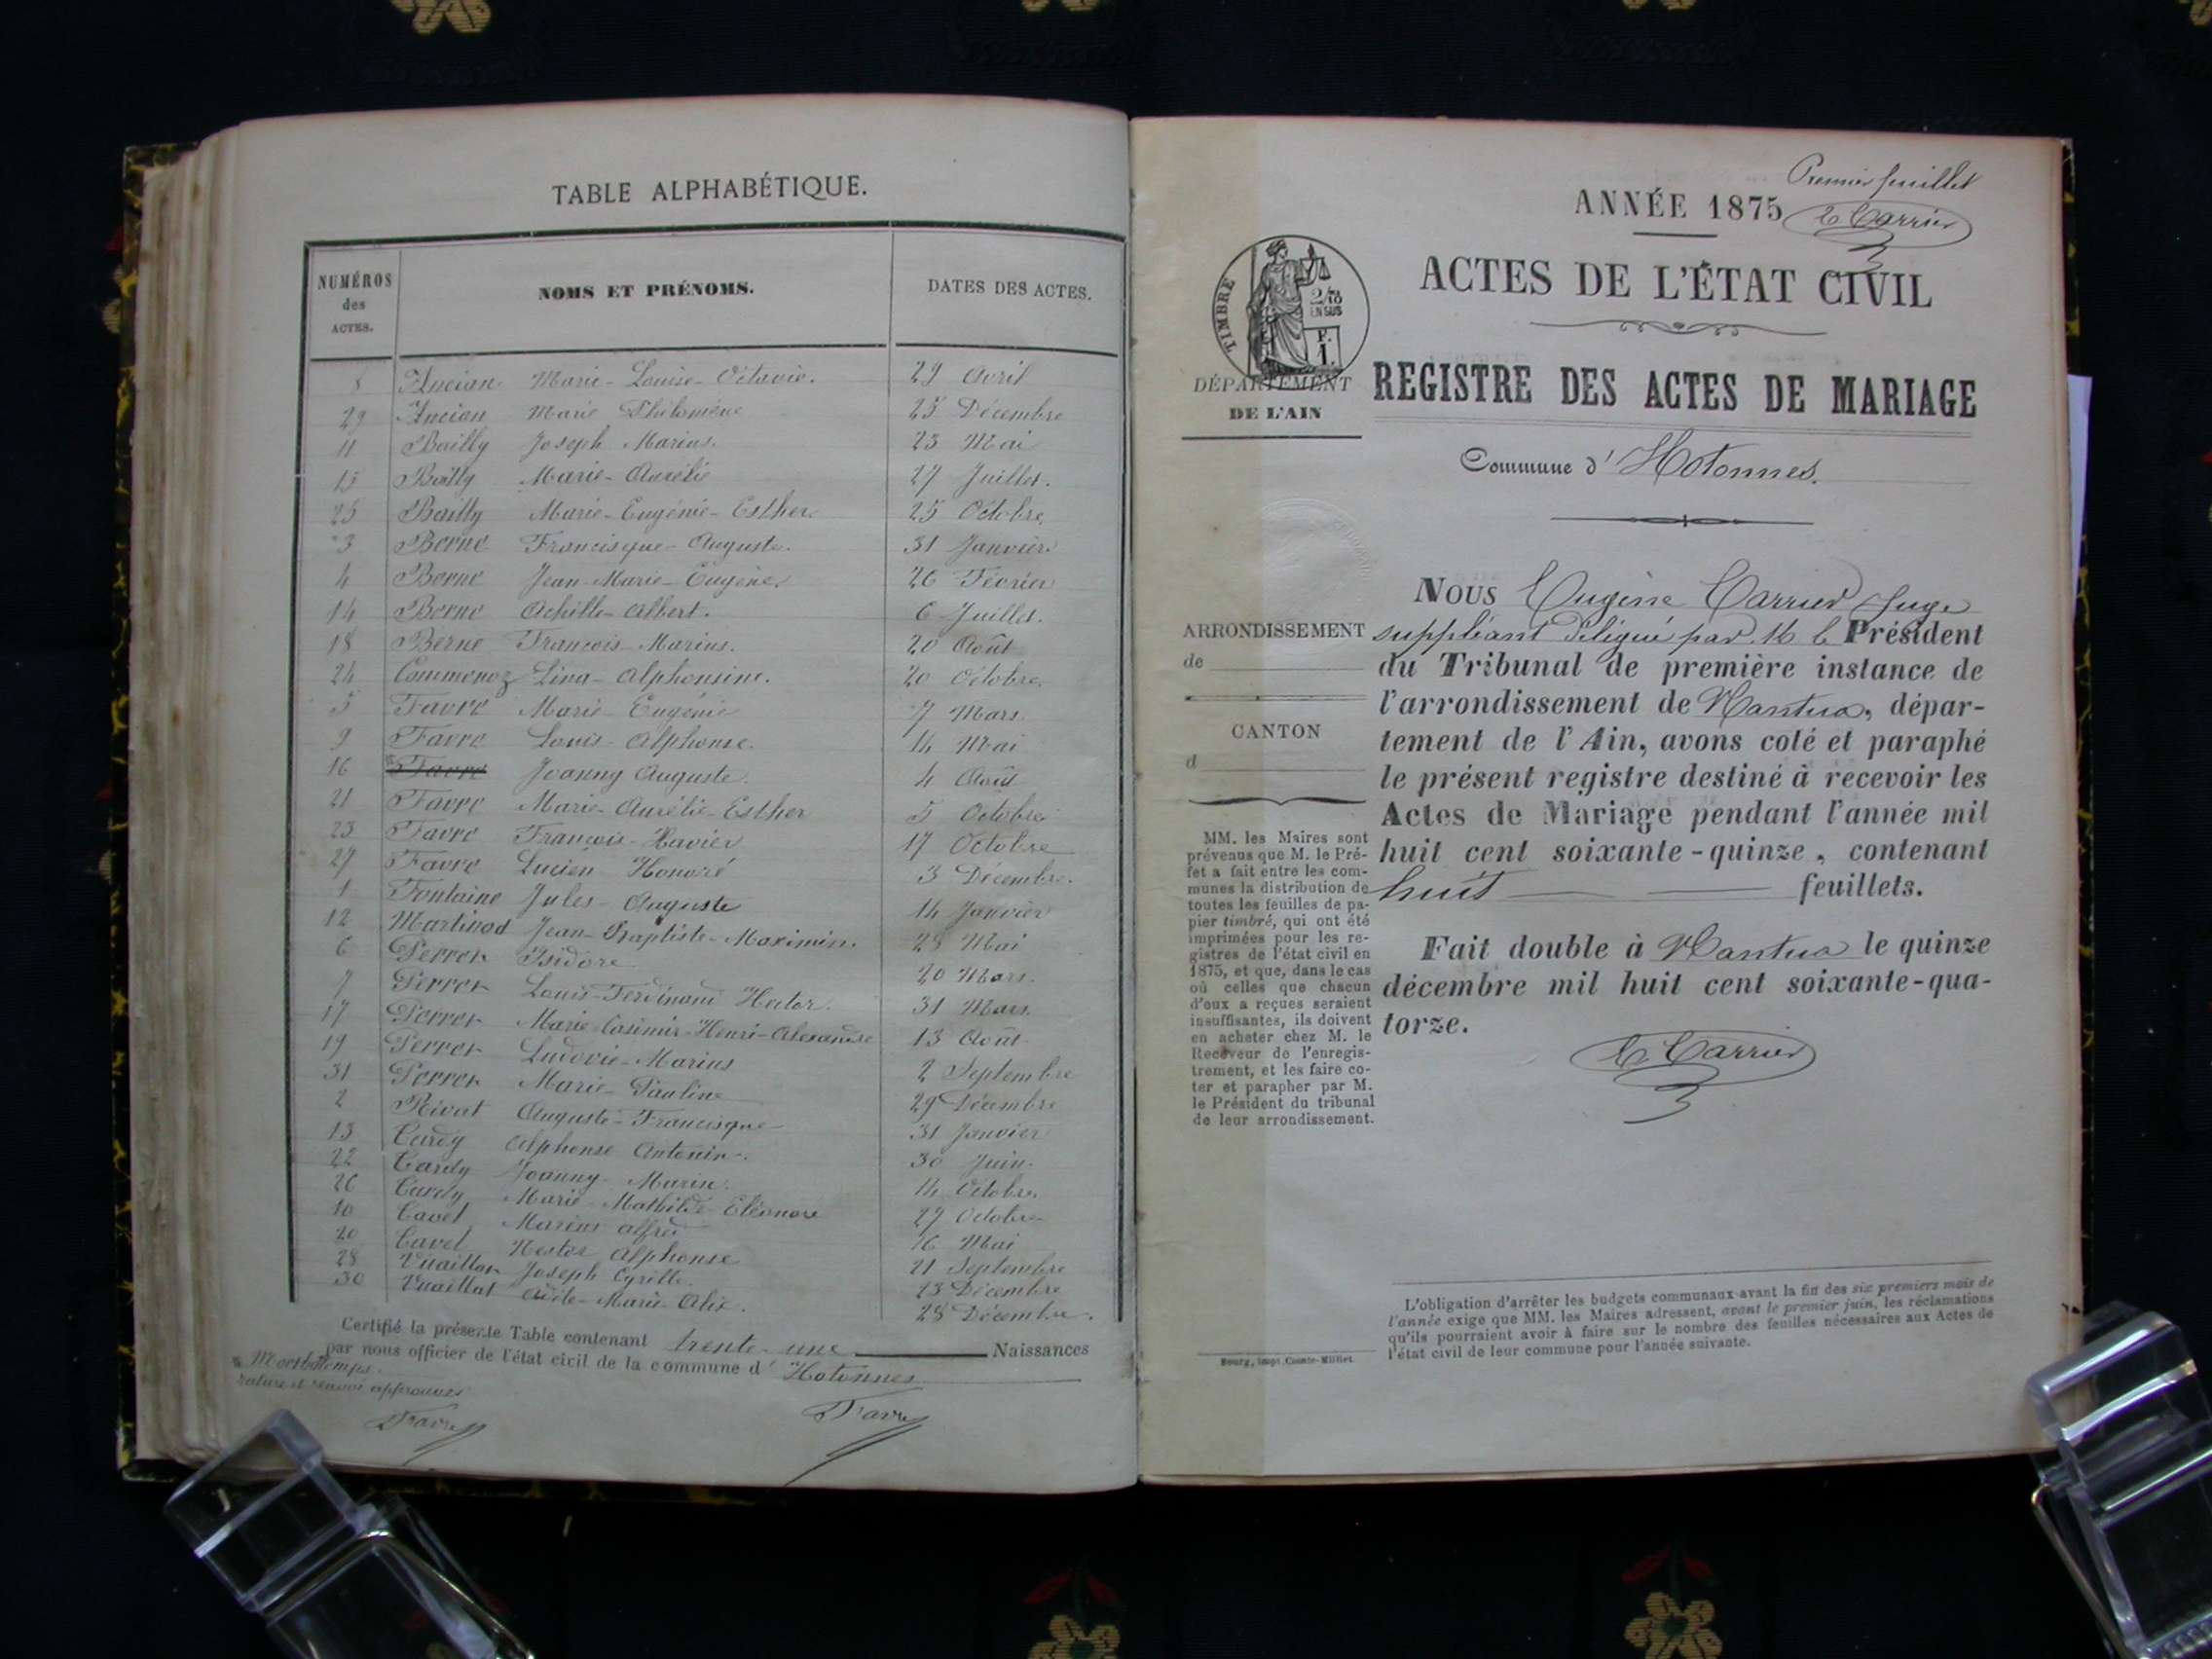 TABLE ALPHABÉTIQUE.
NUMÉROS
des
ACTES.
NOMS ET PRÉNOMS.
DATES DES ACTES.
8 Ancian Marie-Louise-Octavie. 29 Avril
29 Ancian Marie Philomène 25 Décembre
11 Bailly Joseph Marius. 23 Mai
15 Bailly Marie-Aurélie 27 Juillet.
25 Bailly Marie-Eugénie-Esther. 25 Octobre
3 Berne Francisque-Auguste. 31 Janvier
4 Berne Jean-Marie-Eugène. 26 Février
14 Berne Achille-Albert. 6 Juillet.
18 Berne François-Marius. 20 Août
24 Lina-Alphonsine. 20 Octobre
5 Favre Marie-Eugénie 7 Mars.
9 Favre Louis-Alphonse. 14 Mai
16 Favre Joanny Auguste. 4 Août
21 Favre Marie-Aurélie-Esther 5 Octobre
23 Favre François-Xavier 17 Octobre
27 Favre Lucien Honoré 3 Décembre.
1 Fontaine Jules-Auguste 14 Janvier
12 Martinod Jean-Baptiste-Maximin. 28 Mai
6 Perret Isidore 20 Mars.
7 Perret Louis-Ferdinand Hector. 31 Mars.
17 Perret Marie-Casimir-Henri-Alexandre 13 Août
19 Perret Ludovic-Marius 2 Septembre
31 Perret Marie-Pauline 29 Décembre
2 Rivat Auguste-Francisque 31 Janvier
13 Tardy Alphonse Antonin. 30 Juin.
22 Tardy Joanny-Marin. 14 Octobre
26 Tardy Marie-Mathilde-Eléonore 27 Octobre
10 Tavel Marius Alfred 16 Mai
20 Tavel Nestor Alphonse 21 Septembre
28 Vuaillat Joseph Cyrille. 23 Décembre
30 Vuaillat Marie-Alix. 28 Décembre.
Certifié la présente Table contenant trente-une Naissances
par nous officier de l'état civil de la commune d' Hotonnes
rature et renvoi approuvés
Favre
Favre
Premier feuillet
ANNÉE 1875
E Carrier
ACTES DE L'ÉTAT CIVIL
TIMBRE
2/10
EN SUS
F.
1.
DÉPARTEMENT
DE L'AIN
REGISTRE DES ACTES DE MARIAGE
Commune d' Hotonnes.
NOUS Eugène Carrier Juge
suppléant délégué par M le Président
du Tribunal de première instance de
l'arrondissement de Nantua, dépar-
tement de l'Ain, avons coté et paraphé
le présent registre destiné à recevoir les
Actes de Mariage pendant l'année mil
huit cent soixante-quinze, contenant
huit feuillets.
Fait double à Nantua le quinze
décembre mil huit cent soixante-qua-
torze.
E Carrier
ARRONDISSEMENT
de
CANTON
d
MM. les Maires sont
prévenus que M. le Pré-
fet a fait entre les com-
munes la distribution de
toutes les feuilles de pa-
pier timbré, qui ont été
imprimées pour les re-
gistres de l'état civil en
1875, et que, dans le cas
où celles que chacun
d'eux a reçues seraient
insuffisantes, ils doivent
en acheter chez M. le
Receveur de l'enregis-
trement, et les faire co-
ter et parapher par M.
le Président du tribunal
de leur arrondissement.
L'obligation d'arrêter les budgets communaux avant la fin des six premiers mois de
l'année exige que MM. les Maires adressent, avant le premier juin, les réclamations
qu'ils pourraient avoir à faire sur le nombre des feuilles nécessaires aux Actes de
l'état civil de leur commune pour l'année suivante.
Bourg, impr. Comte-Milliet.